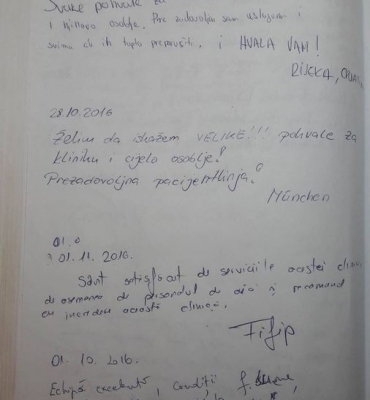 Svake pohvale za
i njihovo osoblje. Prezadovoljna sam uslugom i
svima ću ih toplo preporučiti, i HVALA VAM!
RIJEKA,
28.10.2016
Želim da iskažem VELIKE!!! pohvale za
kliniku i cijelo osoblje!
Prezadovoljna pacijentkinja!
München
01.0
01.11.2016.
Sânt satisfăcut de serviciile acestei clinici
de asemenea de personalul de aici și recomand
cu încredere această clinică.
Filip
01.10.2016.
Echipă excelentă, condiții